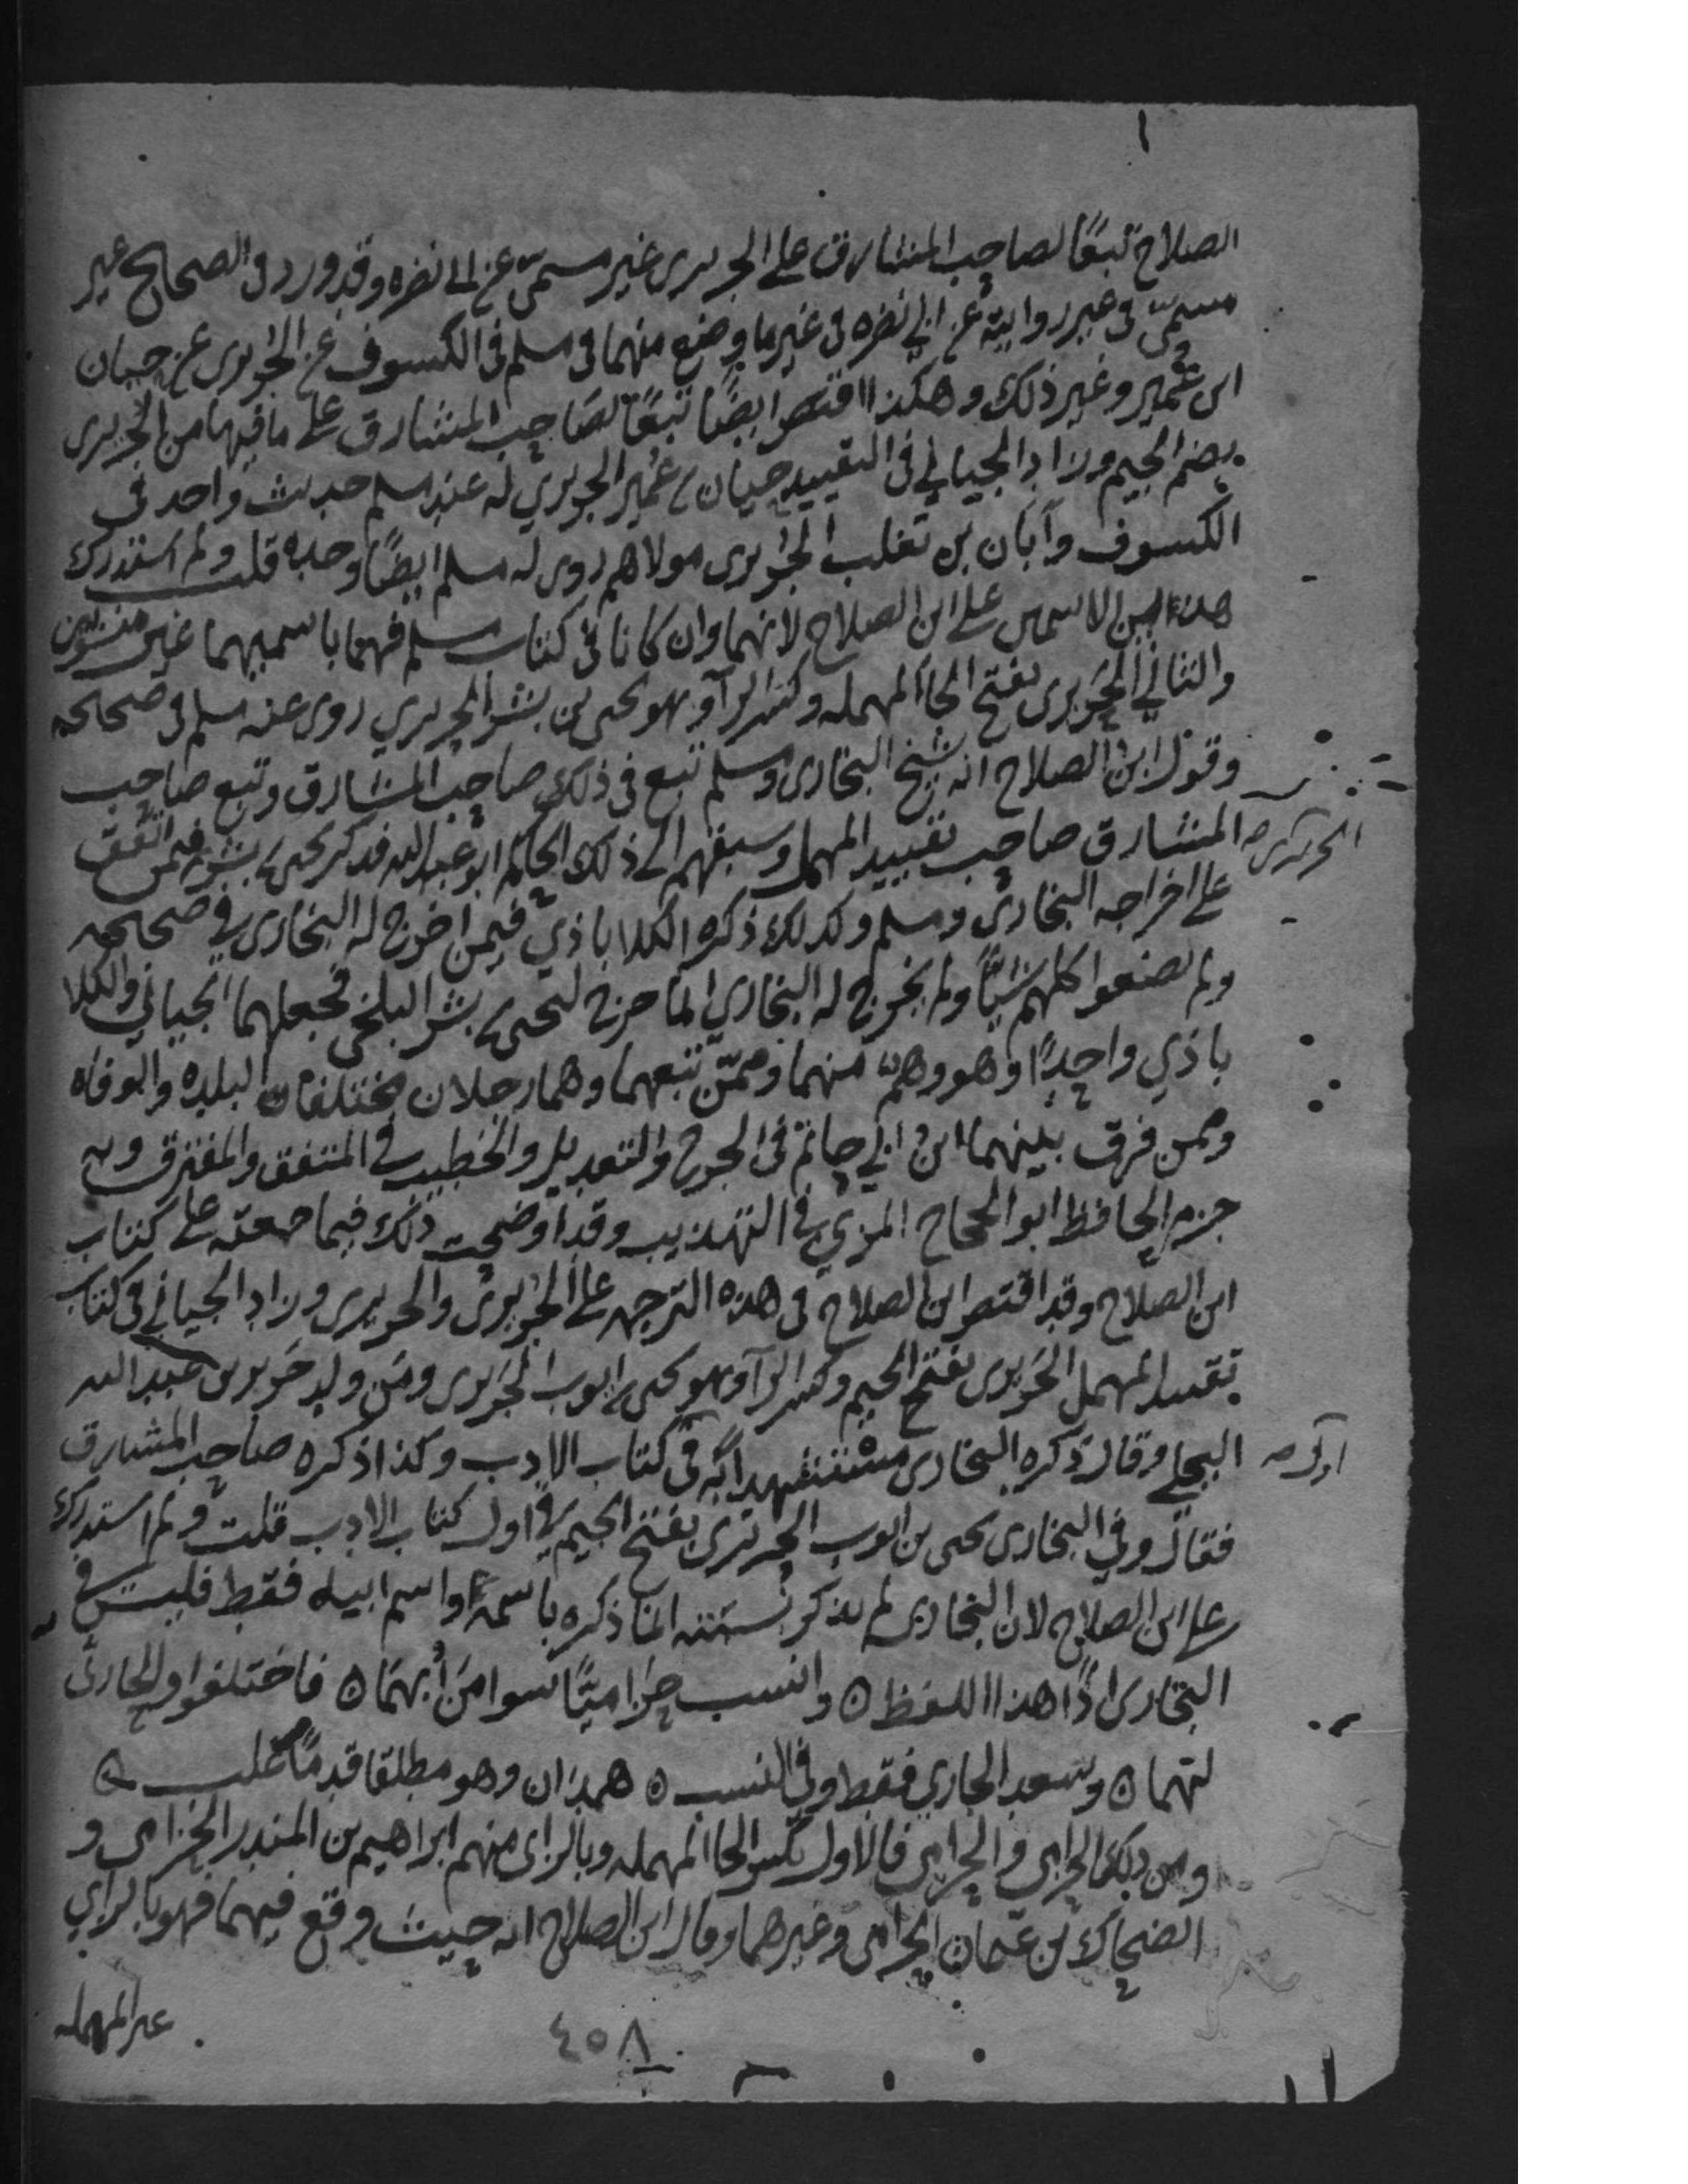 الصلاح تبعًا لصاحب المشارق على الجريرى غير مسمىّ عن ابى نضره وقد ورد فى الصحاح غير
مسمىّ فى غير رواية عن ابي نضره فى غير ما وضع منهما فى مسلم فى الكسوف عن الجُريرى عن حيان
ابن عُمير وغير ذلك وهكذا اقتصر ايضًا تبعًا لصَاحب المشارق على ما فيها من الجُريرى
بضم الجيم وزاد الجياني فى التقييد حيان بن عُمير الجريري له عند مسلم حديث واحد فى
الكسوف وأبان بن تغلب الجُريرى مولاهم روى له مسلم ايضًا وحده قلت ولم استدرك
هذين الاسمين على ابن الصلاح لانهما وان كانا فى كتاب مسلم فهما باسميهما غير منسوبين
والثاني الحَريرى بفتح الحاء المهمله وكسر الرآ وهو يحيى بن بشر الحريري روى عنه مسلم فى صحيحه
وقول ابن الصلاح انه شيخ البخارى ومسلم تبع فى ذلك صاحب المشارق وتبع صاحب
المشارق صاحب تقييد المهمل وسبقهم الى ذلك الحاكم ابو عبد الله فذكر يحيى بن بشر فيمن اتفق
على اخراجه البخارى ومسلم وكذلك ذكره الكلاباذي فيمن اخرج له البخارى في صحيحه
ولم يصنعوا كلهم شيئًا ولم يخرج له البخاري انما خرج ليحيى بن بشر البلخى فجعلهما الجياني والكلا
باذي واحدًا وهو وهمٌ منهما وممّن تبعهما وهما رجلان مختلفان البلده والوفاه
وممن فرق بينهما ابن ابي حاتم فى الجرح والتعديل والخطيب في المتفق والمفترق وبه
جزم الحافظ ابو الحجاج المزي في التهذيب وقد اوضحت ذلك فيما جمعته على كتاب
ابن الصلاح وقد اقتصر ابن الصلاح فى هذه الترجمه على الجُريرى والحريرى وزاد الجياني فى كتاب
تقييد المهمل الجَريرى بفتح الجيم وكسر الرآ وهو يحيى بن ايوب الجَريرى ومن ولد جَرير بن عبد الله
البجلي وقال ذكره البخارى مستشهدا به فى كتاب الادب وكذا ذكره صاحب المشارق
فقال وفي البخارى يحيى بن ايوب الجريرى بفتح الجيم في اول كتاب الادب قلت ولم استدرك
على ابن الصلاح لان البخارى لم يذكر نسبته انما ذكره باسمه واسم ابيه فقط فليس في
البخارى اذًا هذا اللفظ ه وانسب حِزاميًّا سوا من أُبهمَا ه فاختلفوا والحارثى
لهما ه وسعد الجاري فقط وفى النسب ه همدان وهو مطلقا قدمًا غلب ه
ومن ذلك الحزامى والحرامى فالاول بكسر الحا المهمله وبالزاى منهم ابراهيم بن المنذر الحزامى و
الضحاك بن عثمان الحزامى وغيرهما وقال ابن الصلاح انه حيث وقع فيهما فهو بالزاي
غير المهمله
٤٥٨